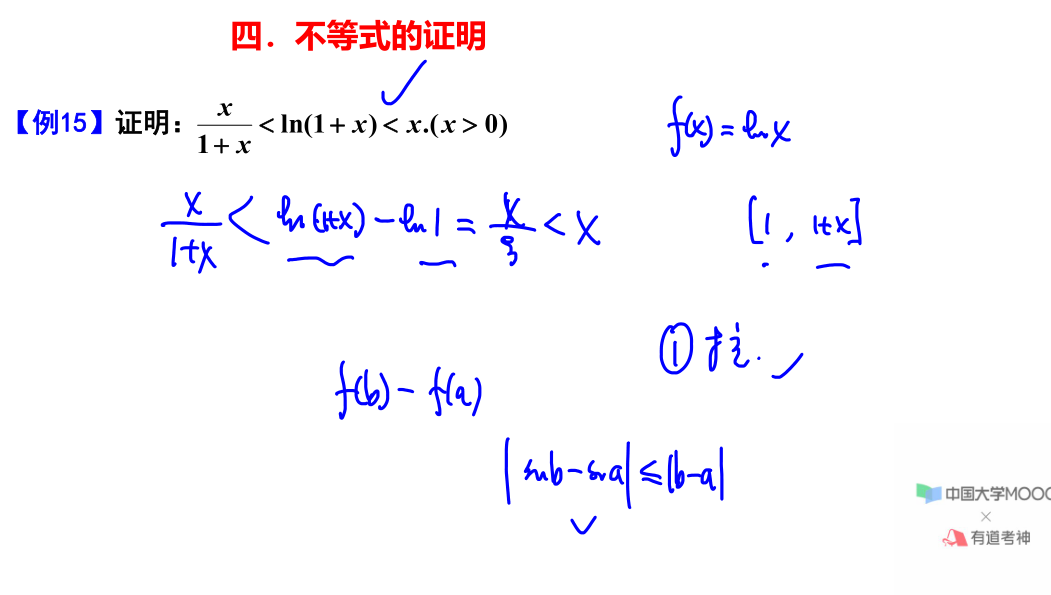 四．不等式的证明
【例15】证明：x/(1+x) < ln(1+x) < x.(x > 0)
f(x) = ln x
x/(1+x) < ln(1+x) − ln 1 = x/ξ < x
[1 , 1+x]
① 拉.
f(b) − f(a)
|sin b − sin a| ≤ |b−a|
中国大学MOOC
×
有道考神